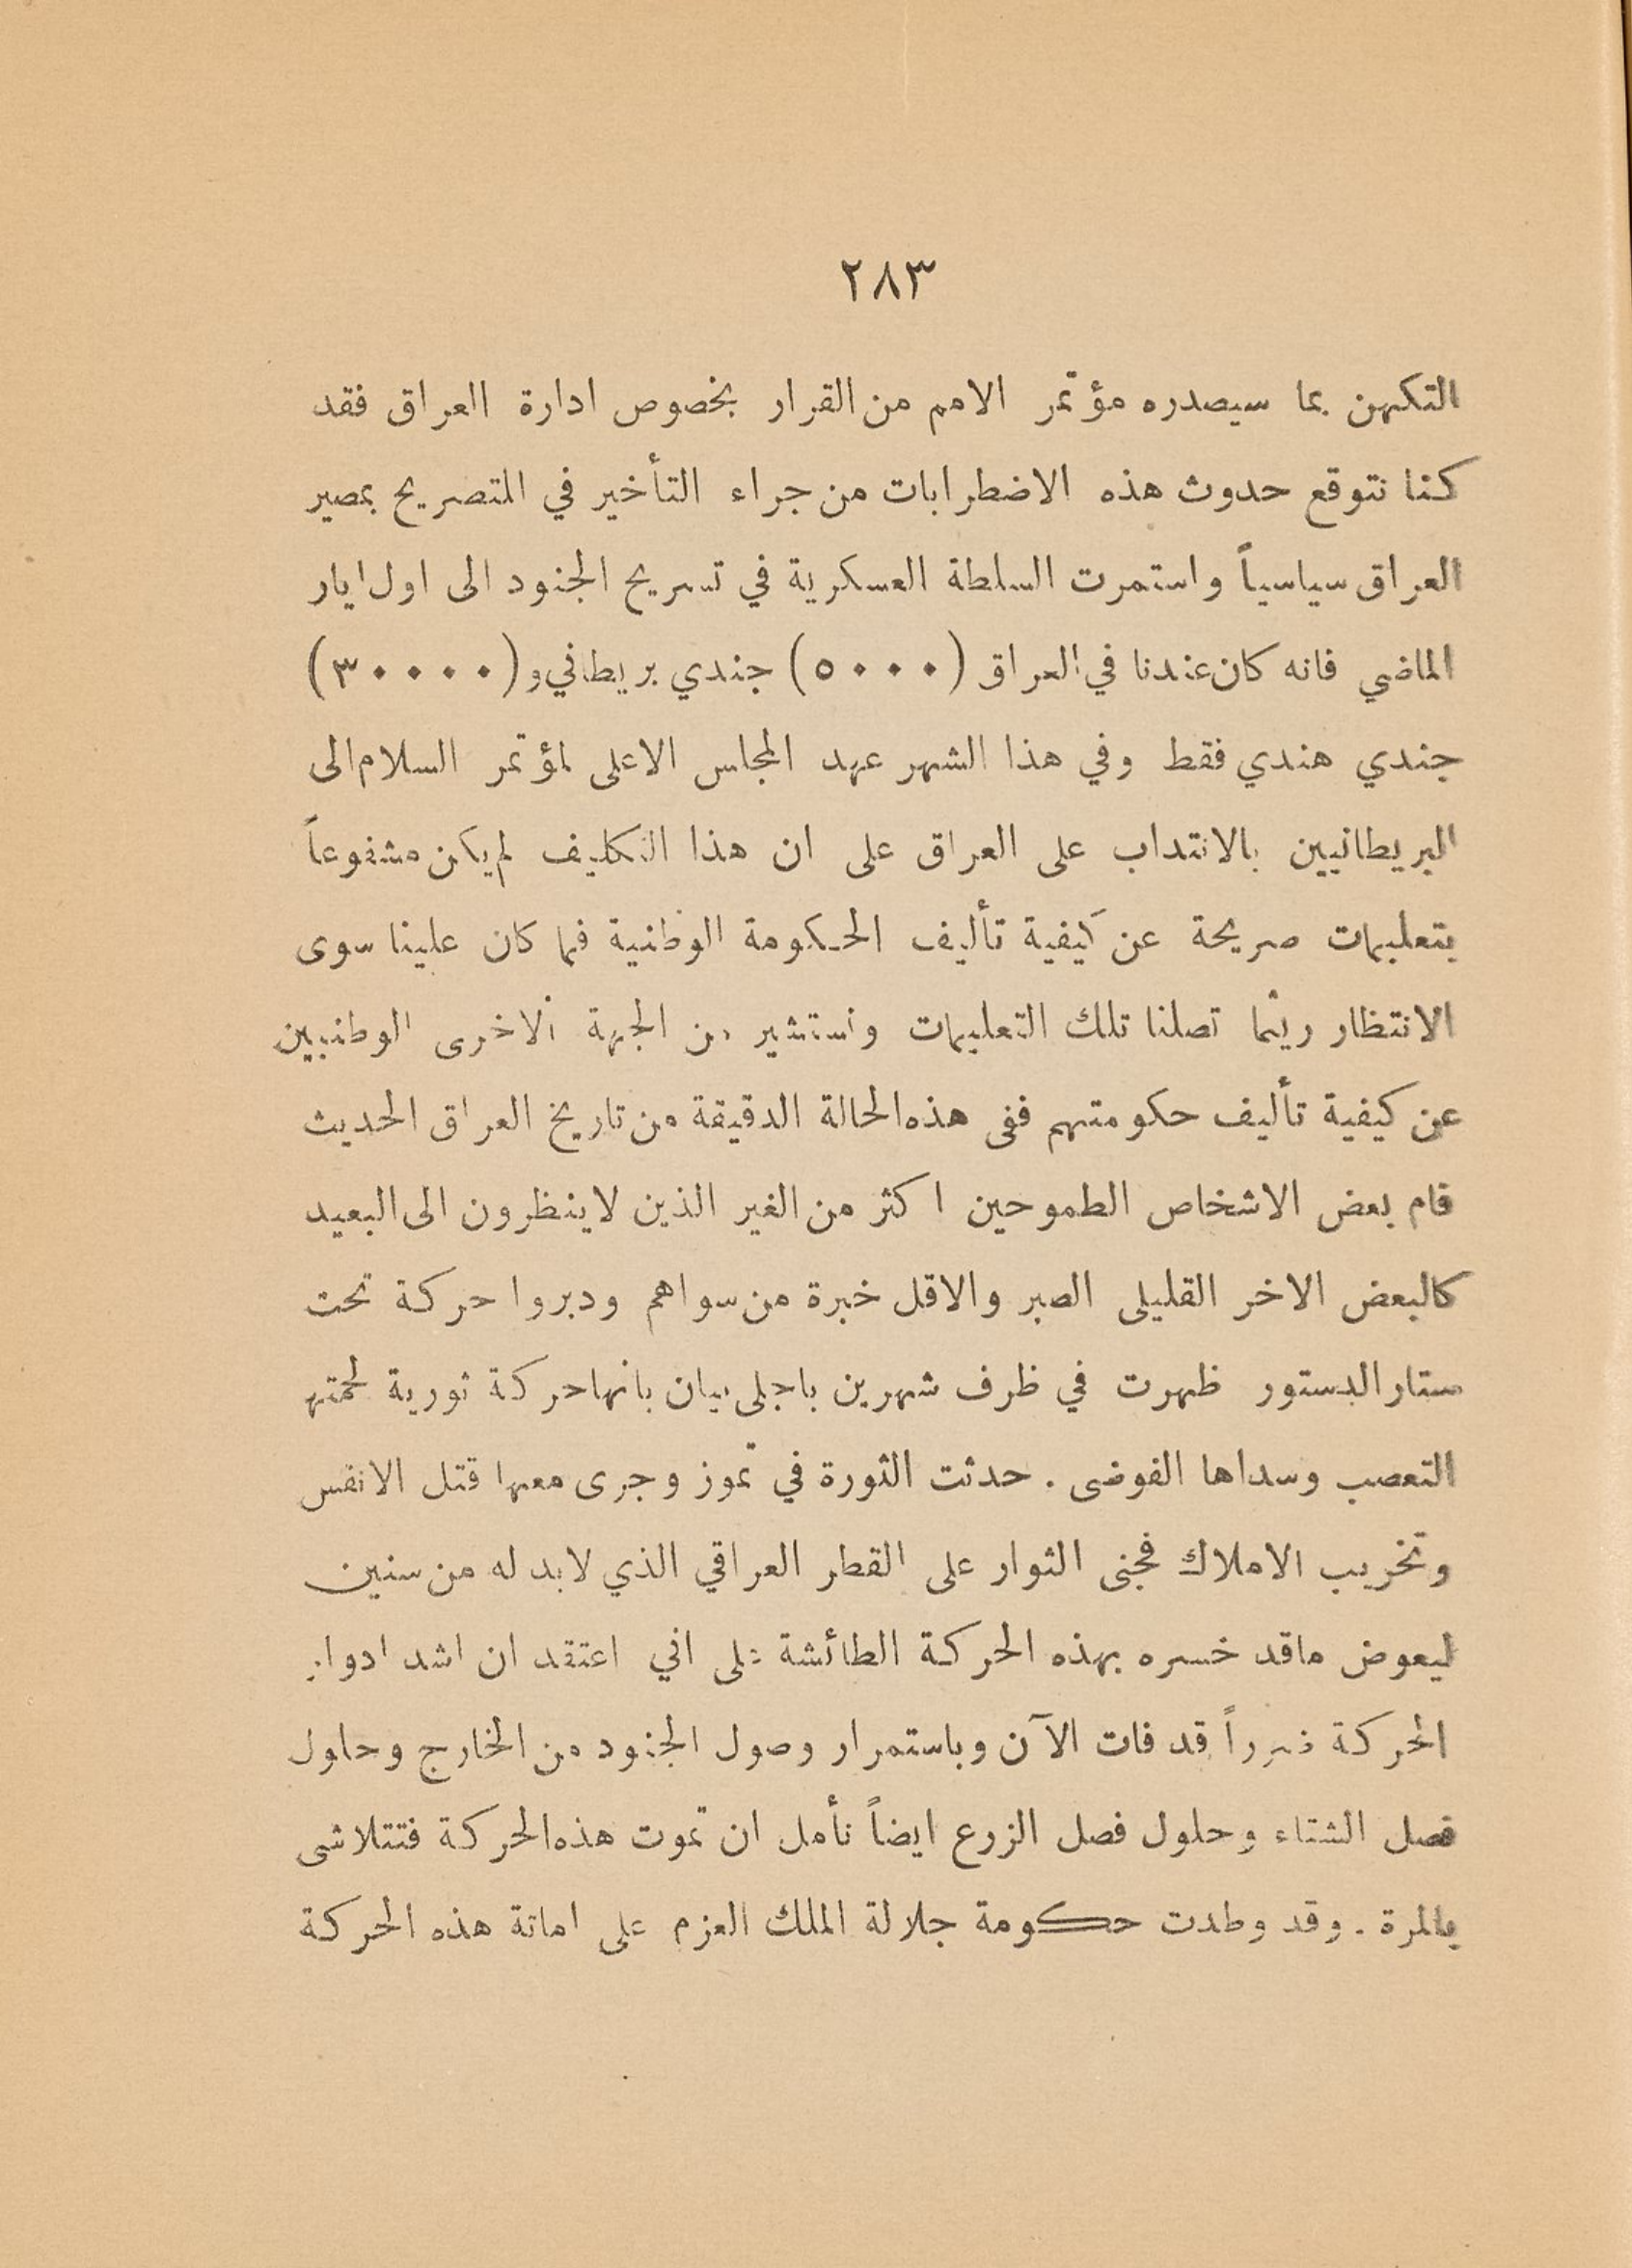 ٢٨٣
التكهن بما سيصدره مؤتمر الامم من القرار بخصوص ادارة العراق فقد
كنا نتوقع حدوث هذه الاضطرابات من جراء التأخير في التصريح بمصير
العراق سياسياً واستمرت السلطة العسكرية في تسريح الجنود الى اول ايار
الماضي فانه كان عندنا في العراق (٥٠٠٠) جندي بريطاني و (٣٠٠٠٠)
جندي هندي فقط وفي هذا الشهر عهد المجلس الاعلى لمؤتمر السلام الى
البريطانيين بالانتداب على العراق على ان هذا التكليف لم يكن مشفوعاً
بتعليمات صريحة عن كيفية تأليف الحكومة الوطنية فما كان علينا سوى
الانتظار ريثما تصلنا تلك التعليمات ونستشير من الجهة الاخرى الوطنيين
عن كيفية تأليف حكومتهم ففى هذه الحالة الدقيقة من تاريخ العراق الحديث
قام بعض الاشخاص الطموحين اكثر من الغير الذين لاينظرون الى البعيد
كالبعض الاخر القليلى الصبر والاقل خبرة من سواهم ودبروا حركة تحت
ستار الدستور ظهرت في ظرف شهرين باجلى بيان بانها حركة ثورية لحمتها
التعصب وسداها الفوضى . حدثت الثورة في تموز وجرى معها قتل الانفس
وتخريب الاملاك فجنى الثوار على القطر العراقي الذي لابد له من سنين
ليعوض ماقد خسره بهذه الحركة الطائشة على اني اعتقد ان اشد ادوار
الحركة ضرراً قد فات الآن وباستمرار وصول الجنود من الخارج وحلول
فصل الشتاء وحلول فصل الزرع ايضاً نأمل ان تموت هذه الحركة فتتلاشى
بالمرة . وقد وطدت حكومة جلالة الملك العزم على اماتة هذه الحركة